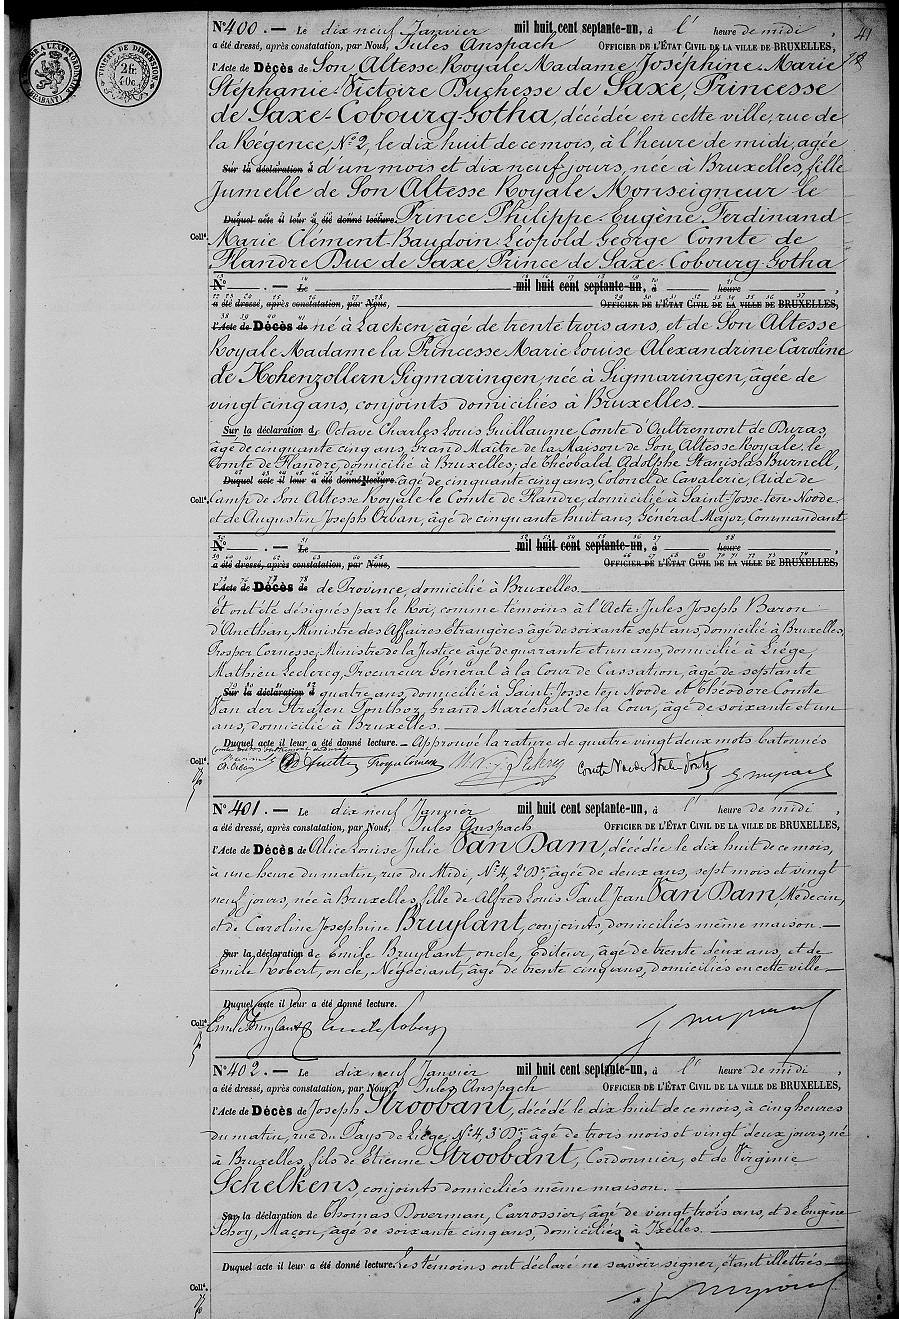 41
N° 400. — Le dix neuf Janvier mil huit cent septante-un, à l' heure de midi,
a été dressé, après constatation, par Nous, Jules Anspach OFFICIER DE L'ÉTAT CIVIL DE LA VILLE DE BRUXELLES,
l'Acte de Décès de Son Altesse Royale Madame Joséphine-Marie
Stéphanie-Victoire Duchesse de Saxe, Princesse
de Saxe-Cobourg-Gotha, décédée en cette ville, rue de
la Régence, N° 2, le dix huit de ce mois, à l'heure de midi, agée
Sur la déclaration d d'un mois et dix neuf jours, née à Bruxelles, fille
TIMBRE DE DIMENSION
2 fr. 40c.
Jumelle de Son Altesse Royale Monseigneur le
Duquel acte il leur a été donné lecture. Prince Philippe-Eugène Ferdinand
Coll<sup>é</sup>. Marie Clément-Baudoin Léopold George Comte de
Flandre Duc de Saxe Prince de Saxe-Cobourg-Gotha
N° . — Le mil huit cent septante-un, à heure
a été dressé, après constatation, par Nous, OFFICIER DE L'ÉTAT CIVIL DE LA VILLE DE BRUXELLES,
l'Acte de Décès de né à Laeken, âgé de trente trois ans, et de Son Altesse
Royale Madame la Princesse Marie Louise Alexandrine Caroline
de Hohenzollern Sigmaringen, née à Sigmaringen, âgée de
vingt cinq ans, conjoints domiciliés à Bruxelles.
Sur la déclaration d, Octave Charles Louis Guillaume Comte d'Oultremont de Duras,
âgé de cinquante cinq ans, Grand Maître de la Maison de Son Altesse Royale, le
Comte de Flandre, domicilié à Bruxelles; de Théobald Adolphe Stanislas Burnell,
Duquel acte il leur a été donné lecture. âgé de cinquante cinq ans, Colonel de Cavalerie, Aide de
Coll<sup>é</sup>. Camp de Son Altesse Royale le Comte de Flandre, domicilié à Saint-Josse-ten-Noode,
et de Augustin Joseph Orban, âgé de cinquante huit ans, Général Major, Commandant
N° . — Le mil huit cent septante-un, à heure
a été dressé, après constatation, par Nous, OFFICIER DE L'ÉTAT CIVIL DE LA VILLE DE BRUXELLES,
l'Acte de Décès de de Province, domicilié à Bruxelles.
Et ont été désignés par le Roi, comme témoins à l'Acte: Jules Joseph Baron
d'Anethan, Ministre des Affaires Etrangères âgé de soixante sept ans, domicilié à Bruxelles,
Prosper Cornesse, Ministre de la Justice âgé de quarante et un ans, domicilié à Liége,
Mathieu Leclercq, Procureur Général à la Cour de Cassation, âgé de septante
Sur la déclaration d quatre ans, domicilié à Saint-Josse ten Noode et Théodore Comte
Van der Straten Ponthoz, Grand Maréchal de la Cour, âgé de soixante et un
ans, domicilié à Bruxelles.
Duquel acte il leur a été donné lecture. — Approuvé la rature de quatre vingt deux mots batonnés
Coll<sup>é</sup>.
N° 401. — Le dix neuf Janvier mil huit cent septante-un, à l' heure de midi,
a été dressé, après constatation, par Nous, Jules Anspach OFFICIER DE L'ÉTAT CIVIL DE LA VILLE DE BRUXELLES,
l'Acte de Décès de Alice Louise Julie Van Dam, décédée le dix huit de ce mois,
à une heure du matin, rue du Midi, N° 4, 2<sup>e</sup> D<sup>on</sup>, âgée de deux ans, sept mois et vingt
neuf jours, née à Bruxelles, fille de Alfred Louis Paul Jean Van Dam, Médecin,
et de Caroline Josephine Bruylant, conjoints, domiciliés même maison.
Sur la déclaration de Emile Bruylant, oncle, Editeur, âgé de trente deux ans, et de
Emile Robert, oncle, Négociant, âgé de trente cinq ans, domiciliés en cette ville
Duquel acte il leur a été donné lecture.
Coll<sup>é</sup>. Emile Bruylant Emile Robert
N° 402. — Le dix neuf Janvier mil huit cent septante-un, à l' heure de midi,
a été dressé, après constatation, par Nous, Jules Anspach OFFICIER DE L'ÉTAT CIVIL DE LA VILLE DE BRUXELLES,
l'Acte de Décès de Joseph Stroobant, décédé le dix huit de ce mois, à cinq heures
du matin, rue du Pays de Liége, N° 4, 3<sup>e</sup> D<sup>on</sup>, âgé de trois mois et vingt deux jours, né
à Bruxelles, fils de Etienne Stroobant, Cordonnier, et de Virginie
Schelkens, conjoints domiciliés même maison.
Sur la déclaration de Thomas Doverman, Carrossier, âgé de vingt trois ans, et de Eugène
Schoy, Maçon, âgé de soixante cinq ans, domiciliés à Ixelles.
Duquel acte il leur a été donné lecture. Les témoins ont déclaré ne savoir signer, étant illettrés
Coll<sup>é</sup>.